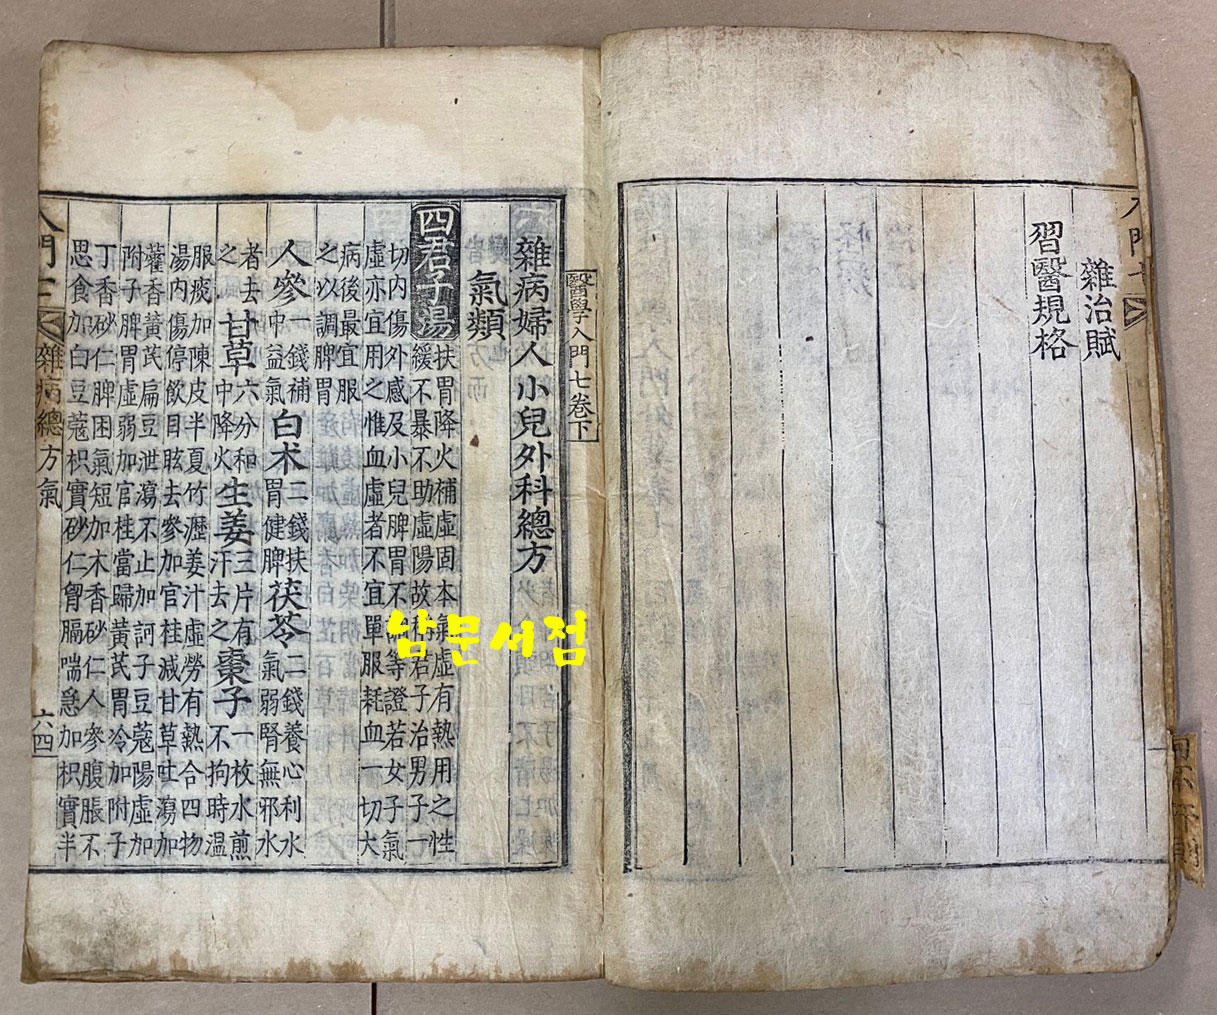 雜治賦
習醫規格
醫學入門七卷下
雜病婦人小兒外科總方
氣類
四君子湯
扶胃降火補虛固本氣虛有熱用之性
緩不暴不助虛陽故稱君子治男子一
切內傷外感及小兒脾胃不調等證若女子氣
虛亦宜用之惟血虛者不宜單服耗血一切大
病後最宜服
之以調脾胃
人參一錢補中益氣白朮二錢扶胃健脾茯苓二錢養心利水氣弱腎無邪水
者去之甘草六分和中降火生姜三片有汗去之棗子一枚水煎不拘時溫
服痰加陳皮半夏竹瀝姜汁虛勞有熱合四物
湯內傷停飲目眩去參加官桂減甘草吐瀉加
藿香黃芪扁豆泄瀉不止加訶子豆蔻陽虛加
附子脾胃虛弱加官桂當歸黃芪胃冷加附子
丁香砂仁脾困氣短加木香砂仁人參腹脹不
思食加白豆蔻枳實砂仁胷膈喘急加枳實半
雜病總方氣
六四
남문서점